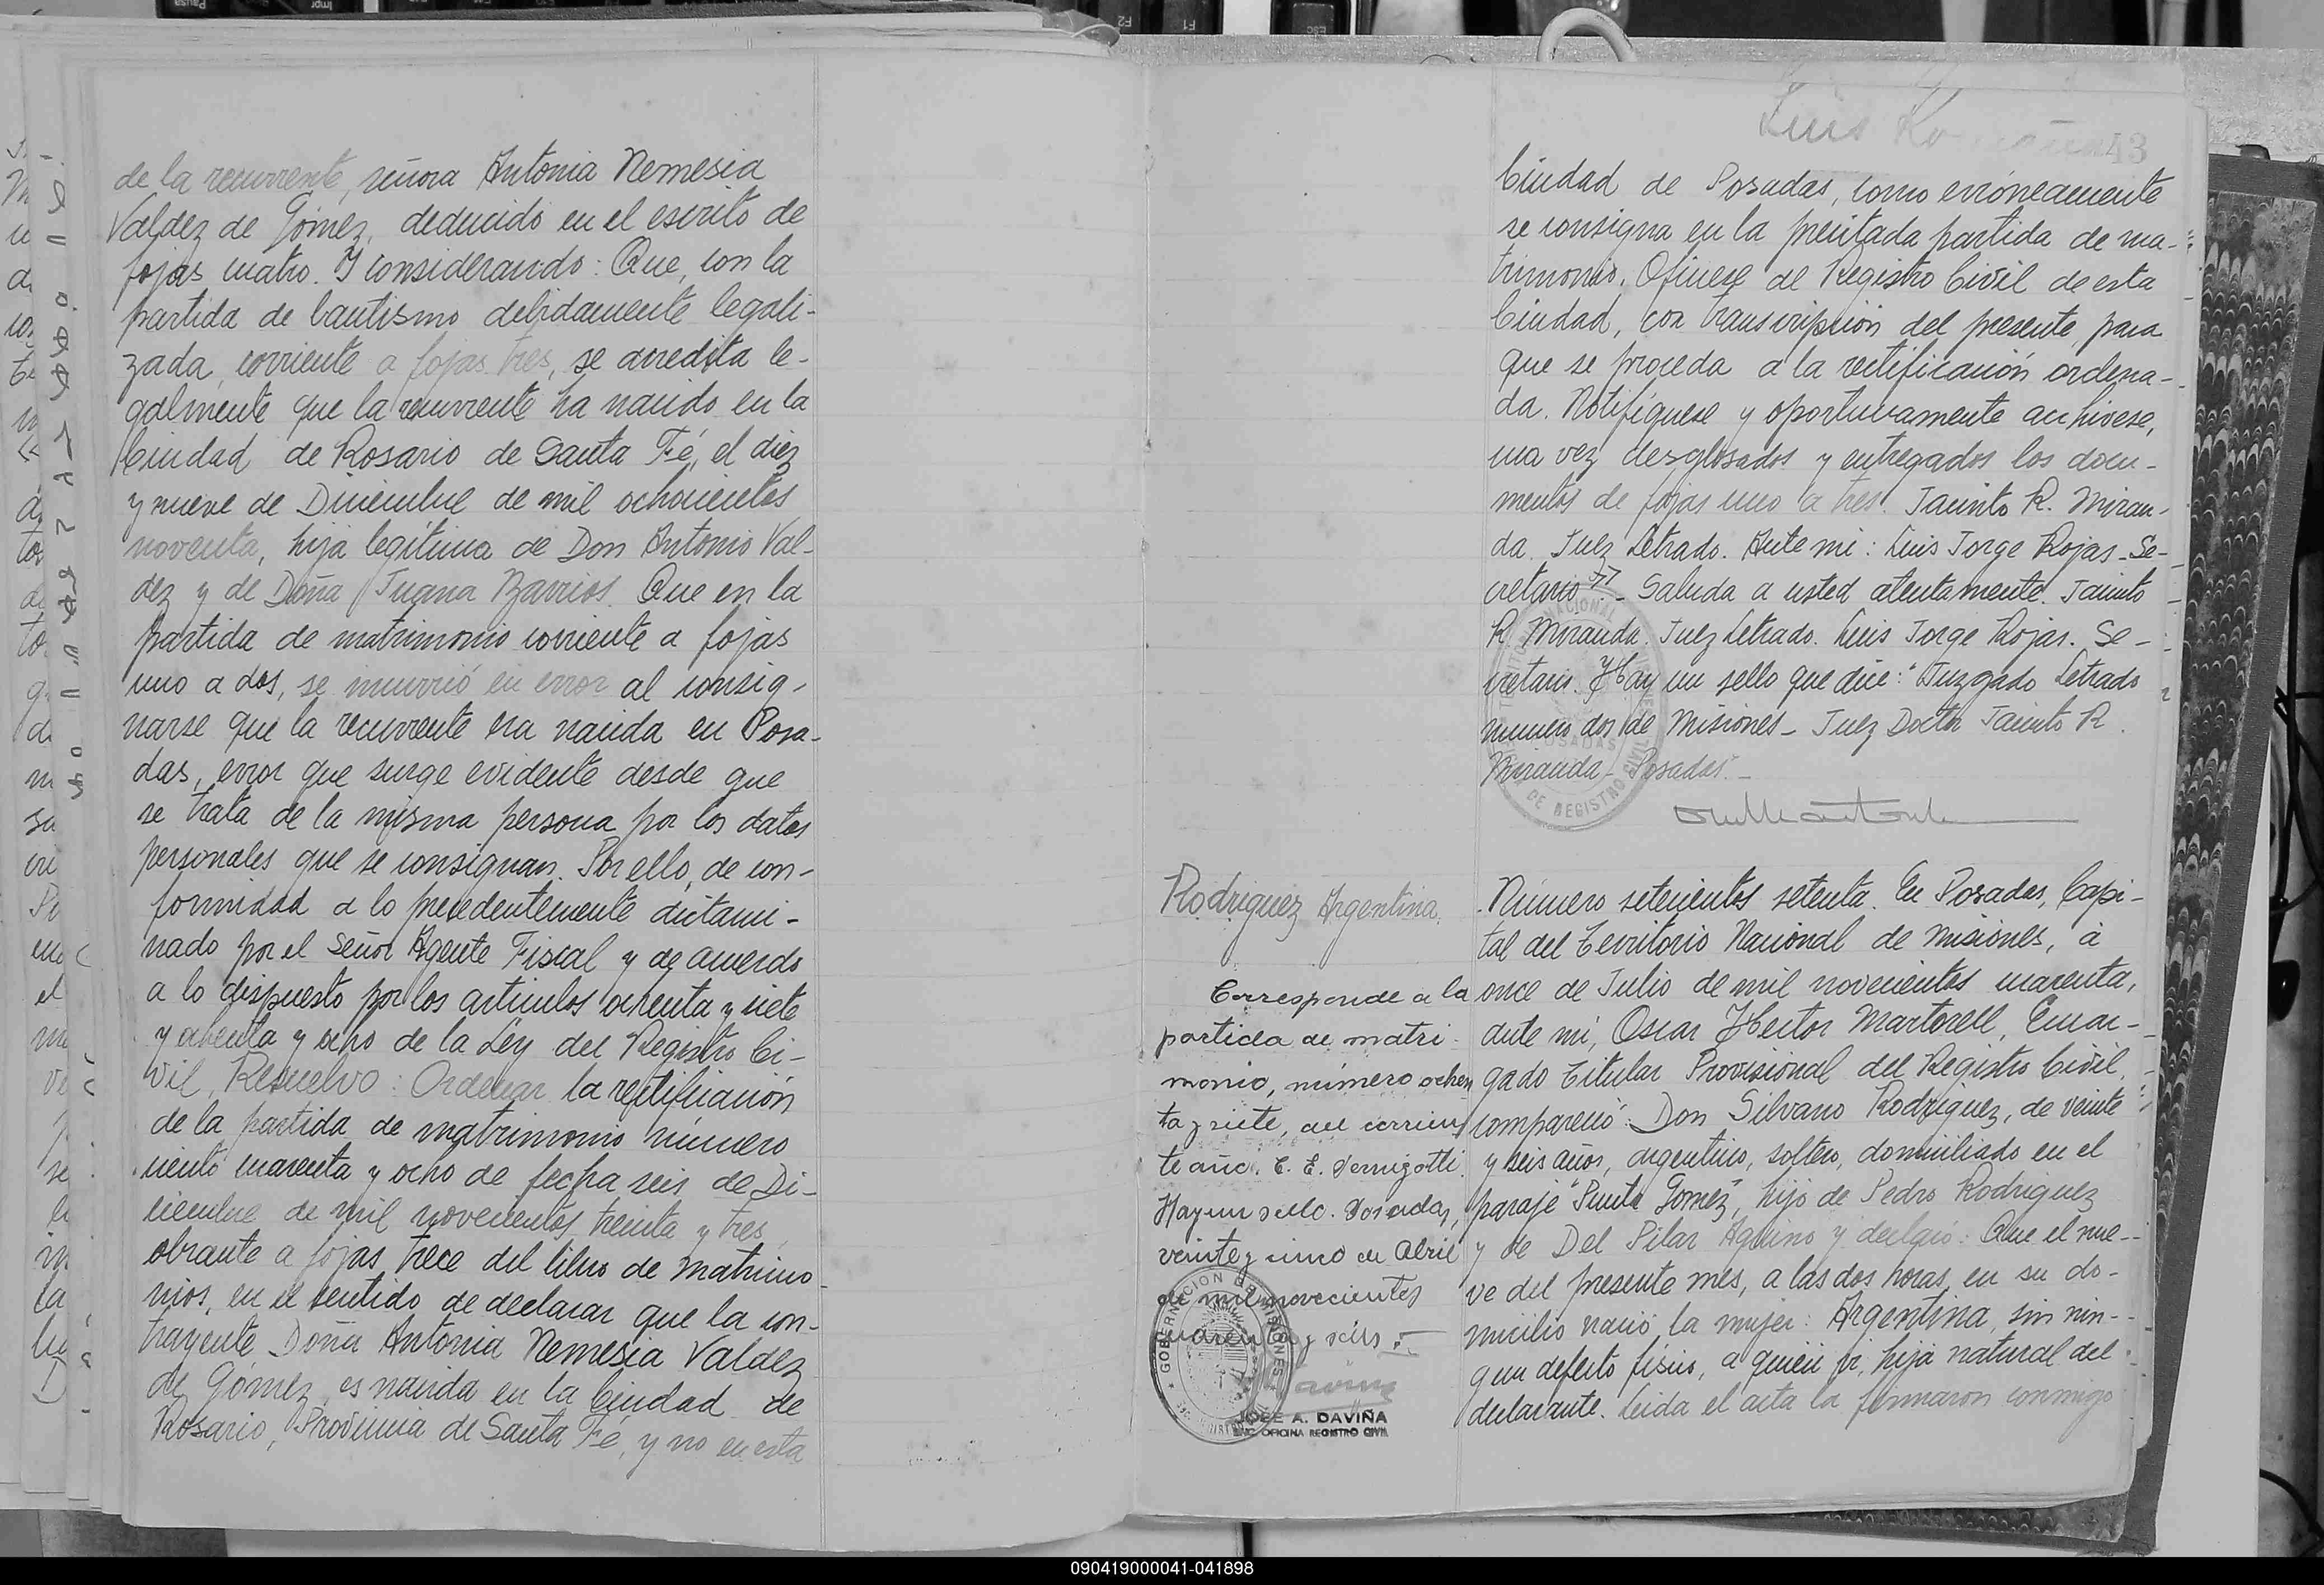 de la recurrente, señora Antonia Nemesia
Valdez de Gómez, deducido en el escrito de
fojas cuatro. Y considerando: Que, con la
partida de bautismo debidamente legali-
zada, corriente a fojas tres, se acredita le-
galmente que la recurrente ha nacido en la
Ciudad de Rosario de Santa Fé, el diez
y nueve de Diciembre de mil ochocientos
noventa, hija legítima de Don Antonio Val-
dez y de Doña Juana Barrios. Que en la
partida de matrimonio corriente a fojas
uno a dos, se incurrió en error al consig-
narse que la recurrente era nacida en Posa-
das, error que surge evidente desde que
se trata de la misma persona por los datos
personales que se consignan. Por ello, de con-
formidad a lo precedentemente dictami-
nado por el Señor Agente Fiscal y de acuerdo
a lo dispuesto por los artículos ochenta y siete
y ochenta y ocho de la Ley del Registro Ci-
vil, Resuelvo: Ordenar la rectificación
de la partida de matrimonio número
ciento cuarenta y ocho de fecha seis de Di-
ciembre de mil novecientos treinta y tres,
obrante a fojas trece del libro de matrimo-
nios, en el sentido de declarar que la con-
trayente Doña Antonia Nemesia Valdez
de Gómez, es nacida en la Ciudad de
Rosario, Provincia de Santa Fé, y no en esta
Luis
43
Ciudad de Posadas, como erróneamente
se consigna en la precitada partida de ma-
trimonio. Ofíciese al Registro Civil de esta
Ciudad, con transcripción del presente, para
que se proceda a la rectificación ordena-
da. Notifíquese y oportunamente archívese,
una vez desglosados y entregados los docu-
mentos de fojas uno a tres. Jacinto R. Miran-
da. Juez Letrado. Ante mi: Luis Jorge Rojas. Se-
cretario". Saluda a usted atentamente. Jacinto
R. Miranda. Juez Letrado. Luis Jorge Rojas. Se-
cretario. Hay un sello que dice: "Juzgado Letrado
número dos de Misiones - Juez Doctor Jacinto R.
Miranda - Posadas".
Rodriguez Argentina.
Corresponde a la
partida de matri-
monio, número ochen
ta y siete, del corrien
te año. E. E. Pernigotti.
Hay un sello. Posadas,
veinte y cinco de Abril
de mil novecientos
cuarenta y seis.
GOBERNACION DE MISIONES
JOSE A. DAVIÑA
ENC. OFICINA REGISTRO CIVIL
Número setecientos setenta. En Posadas, Capi-
tal del Territorio Nacional de Misiones, á
once de Julio de mil novecientos cuarenta,
ante mi, Oscar Hector Martorell, Encar-
gado Titular Provisional del Registro Civil,
compareció: Don Silvano Rodriguez, de veinte
y seis años, argentino, soltero, domiciliado en el
paraje "Punta Gomez", hijo de Pedro Rodriguez
y de Del Pilar Aquino y declaró: Que el nue-
ve del presente mes, a las dos horas, en su do-
micilio nació la mujer: Argentina, sin nin-
gun defecto físico, a quien vi, hija natural del
declarante. Leida el acta la firmaron conmigo
090419000041-041898